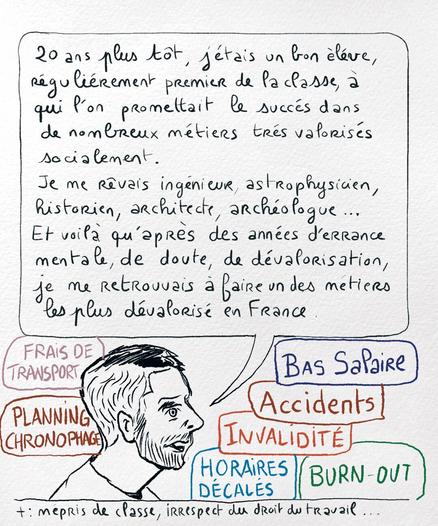 20 ans plus tôt, j'étais un bon élève,
régulièrement premier de la classe, à
qui l'on promettait le succés dans
de nombreux métiers trés valorisés
socialement.
Je me rêvais ingénieur, astrophysicien,
historien, architecte, archéologue...
Et voilà qu'après des années d'errance
mentale, de doute, de dévalorisation,
je me retrouvais à faire un des métiers
les plus dévalorisé en France.
FRAIS DE
TRANSPORT
BAS SALAIRE
PLANNING
CHRONOPHAGE
Accidents
INVALIDITÉ
HORAIRES
DÉCALÉS
BURN-OUT
+: mépris de classe, irrespect du droit du travail...